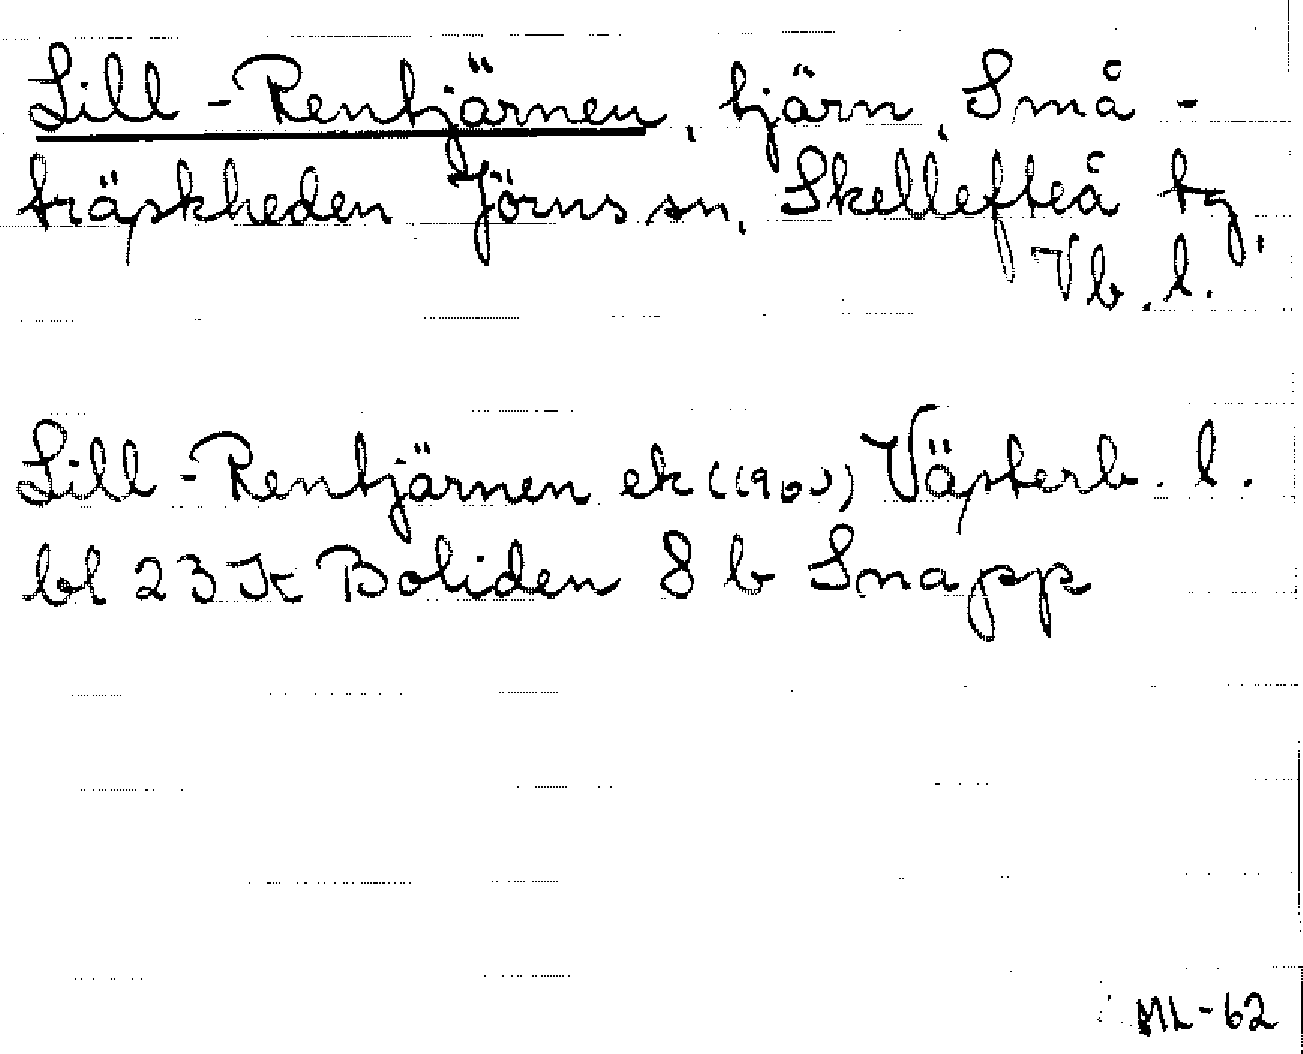 Lill-Rentjärnen, tjärn, Små-
träskheden Jörns sn, Skellefteå tg,
Vb. l.
Lill-Rentjärnen ek (1960) Västerb. l.
bl 23 K Boliden 8 b Snapp
ML-62